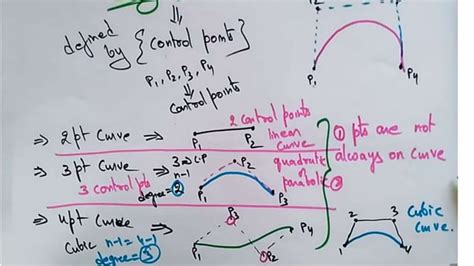 defined by { control points }
P1, P2, P3, P4
control points
P1 P4
⇒ 2pt curve ⇒ P1 P2 2 control points linear curve
⇒ 3 pt curve ⇒ 3 → C.P n-1 degree = 2
3 control pts
P1 P2 P3 quadratic or parabolic
① pts are not always on curve
②
⇒ 4pt curve ⇒ P1 P3 P2 P4
cubic n-1 = 4-1
degree = 3
1 2 3 4 cubic curve.